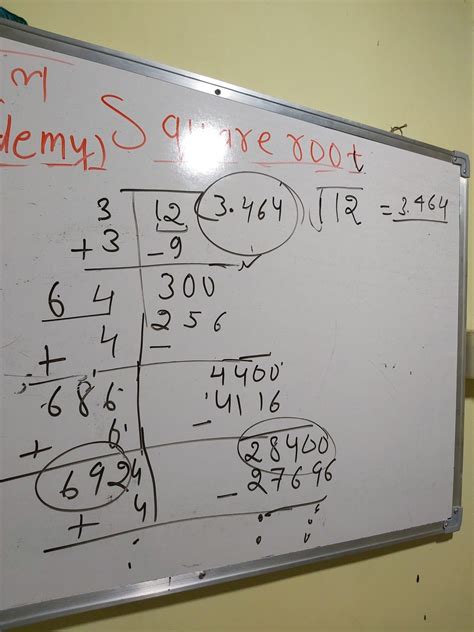 demy) Square root
3 12 3.464 √12 = 3.464
+ 3 - 9
64 300
+ 4 256
-
686 4400
+ 6 - 4116
6924 28400
+ 4 - 27696